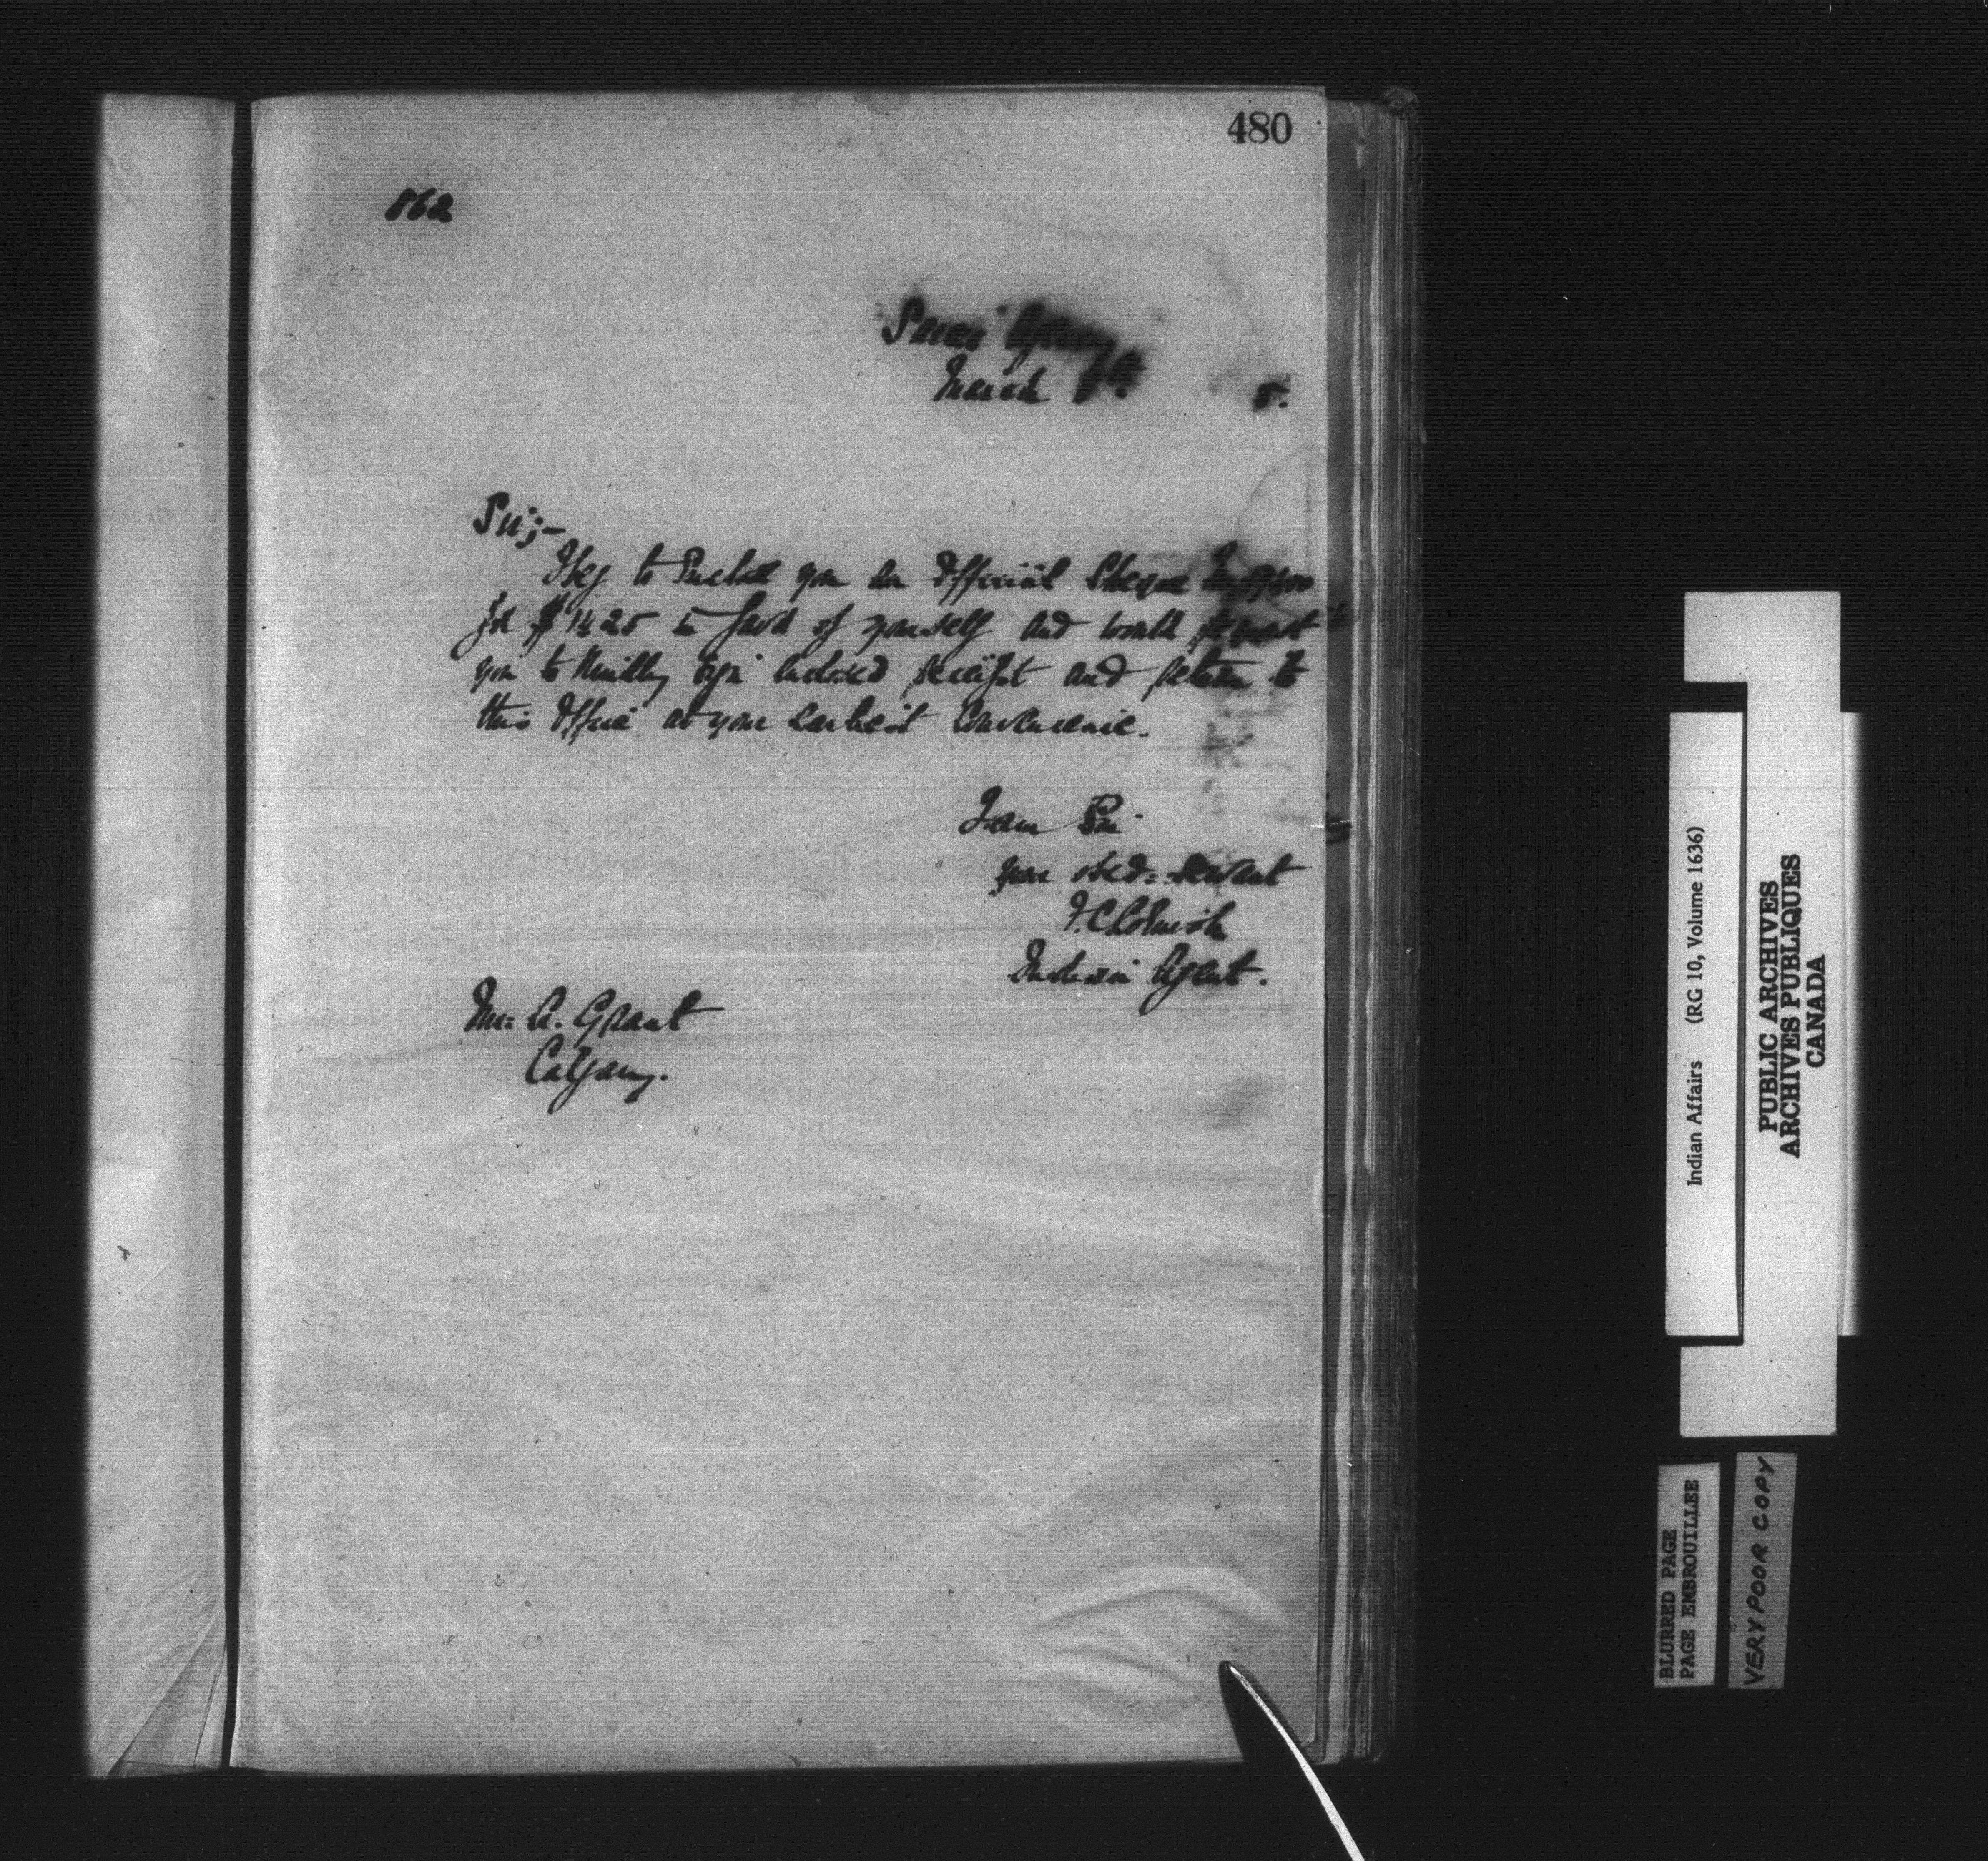 480
862
Sarcee Agency
March
5.
Sir;-
I beg to Enclose you an Official Cheque
for $ 14 25 in favor of yourself and would request
you to kindly sign inclosed receipt and return to
this Office at your Earliest Convenience.
I am Sir
your obed: servant
F.C. Cornish
Indian Agent.
Mr: A. Grant
Calgary.
Indian Affairs (RG 10, Volume 1636)
PUBLIC ARCHIVES
ARCHIVES PUBLIQUES
CANADA
BLURRED PAGE
PAGE EMBROUILLEE
VERY POOR COPY